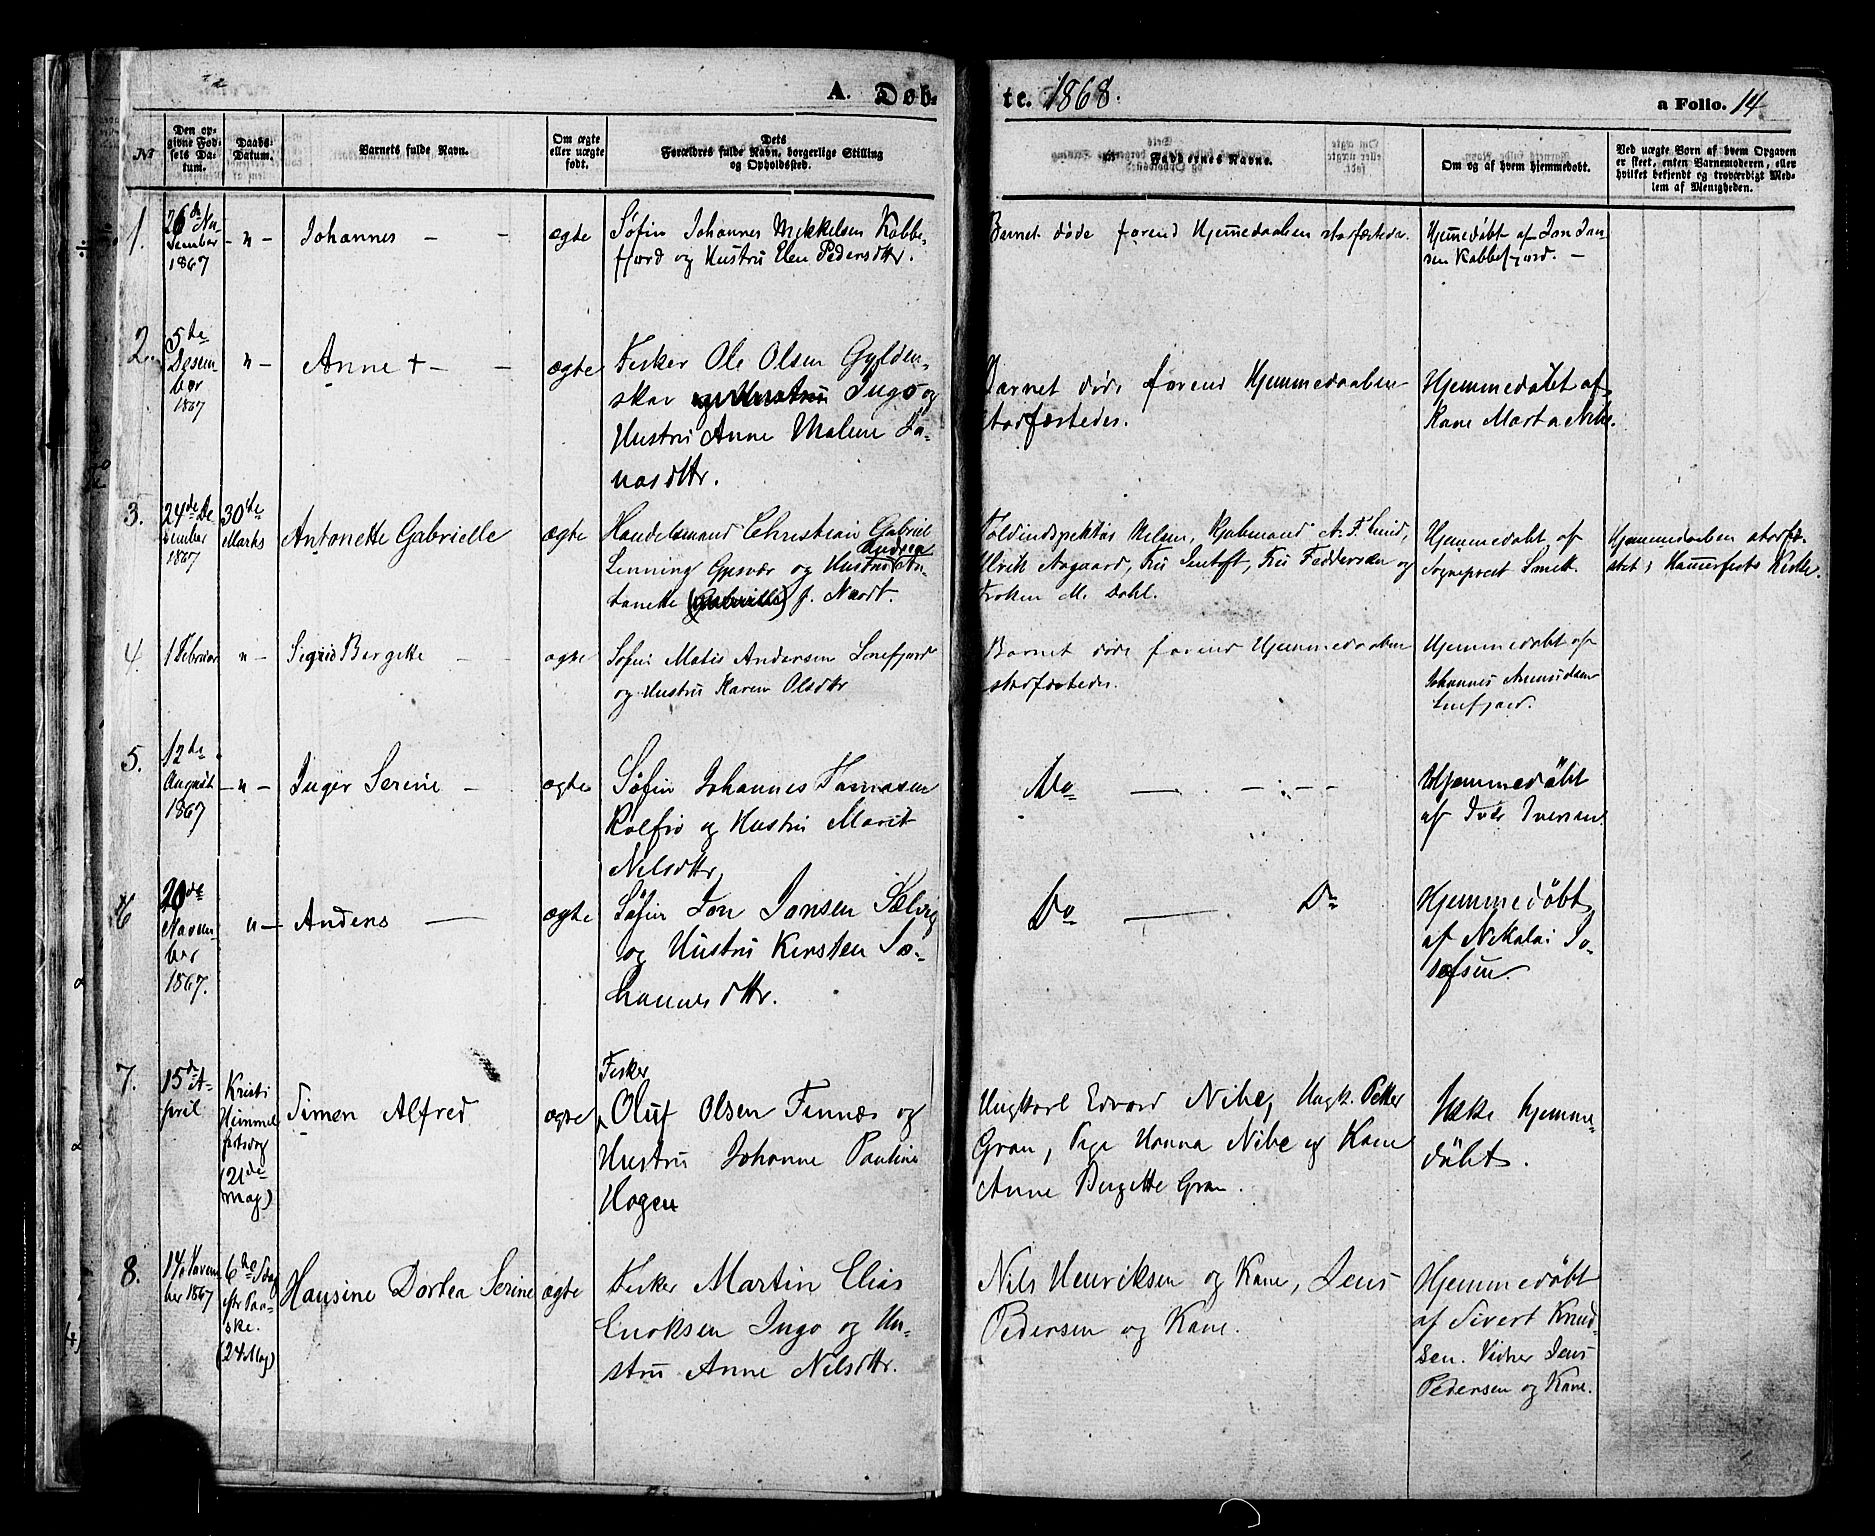 A. Döb-
te. 1868.
a Folio. 14
№
Den op-
givne Fød-
sels Da-
tum.
Daabs-
Datum.
Barnets fulde Navn.
Om ægte
eller uægte
født.
Dets
Forældres fulde Navn, borgerlige Stilling
og Opholdssted.
Faddernes Navne.
Om og af hvem hjemmedøbt.
Ved uægte Børn af hvem Opgaven
er skeet, enten Barnemoderen, eller
hvilket bekjendt og troværdigt Med-
lem af Menigheden.
1.
26de No
vember
1867
- " -
Johannes - -
ægte
Søfin Johannes Mikkelsen Kobbe-
fjord og Hustru Elen Pedersdttr.
Barnet døde førend Hjemmedaaben stadfæstedes.
Hjemmedøbt af Jon Jon-
sen Kobbefjord. -
2.
5te
Desem-
ber
1867
" -
Anne + - -
ægte
Fisker Ole Olsen Gylden-
skar Ingø og
Hustru Anne Malene Jo-
nasdttr.
Barnet døde førend Hjemmedaaben
stadfæstedes.
Hjemmedøbt af
Kone Marta Nibe.
3.
24de De
sember
1867
30te
Marts
Antonette Gabrielle
ægte
Handelsmand Christian Gabriel
Lenning Gjesvær og Hustru Andrea An-
tonette (Gabrielle) f. Nordt.
Toldinspektør Nelsen, Kjøbmand A. F. Lund,
Ulrik Aagaard, Fru Jentoft, Fru Feddersen og
Frøken M. Dahl.
Hjemmedøbt af
Sogneprest Smett.
Hjemmedaaben stadfæ-
stet i Hamerfests Kirke.
4.
1 Februar
" -
Sigrid Bergette -
ægte
Søfin Matis Andersen Snefjord
og Hustru Karen Olsdttr
Barnet døde førend Hjemmedaaben
stadfæstedes.
Hjemmedøbt af
Johannes Amundsen
Snefjord.
5.
12te
August
1867
- " -
Inger Serine -
ægte
Søfin Johannes Tomasen
Rolfsø og Hustru Marit
Nilsdttr
Do - - - -
Hjemmedøbt
af Iver Iversen.
6
20de
Novem-
ber
1867.
" -
Anders -
ægte
Søfin Jon Jonsen Selvig
og Hustru Kirsten Jo-
hannesdttr.
Do - Do
Hjemmedøbt
af Nikolai Jo-
sefsen.
7.
15de A-
pril
Kristi
Himmel
fartsdag
(21de
Maj)
Simon Alfred
ægte
Fisker
Oluf Olsen Finnæs og
Hustru Johanne Pauline
Hagen
Ungkarl Edvard Nibe, Ungk. Petter
Gran, Pige Hanna Nibe og Kone
Anne Bergette Gran.
Ikke hjemme-
døbt.
8.
14 Novem
ber 1867
6te Sdag
eftr Paa-
ske.
(24 Maj)
Hansine Dortea Serine
ægte
Fisker Martin Elias
Enoksen Ingø og Hu-
stru Anne Nilsdttr.
Nils Henriksen og Kone, Jens
Pedersen og Kone.
Hjemmedøbt
af Sivert Knud-
sen. Vidner Jens
Pedersen og Kone.